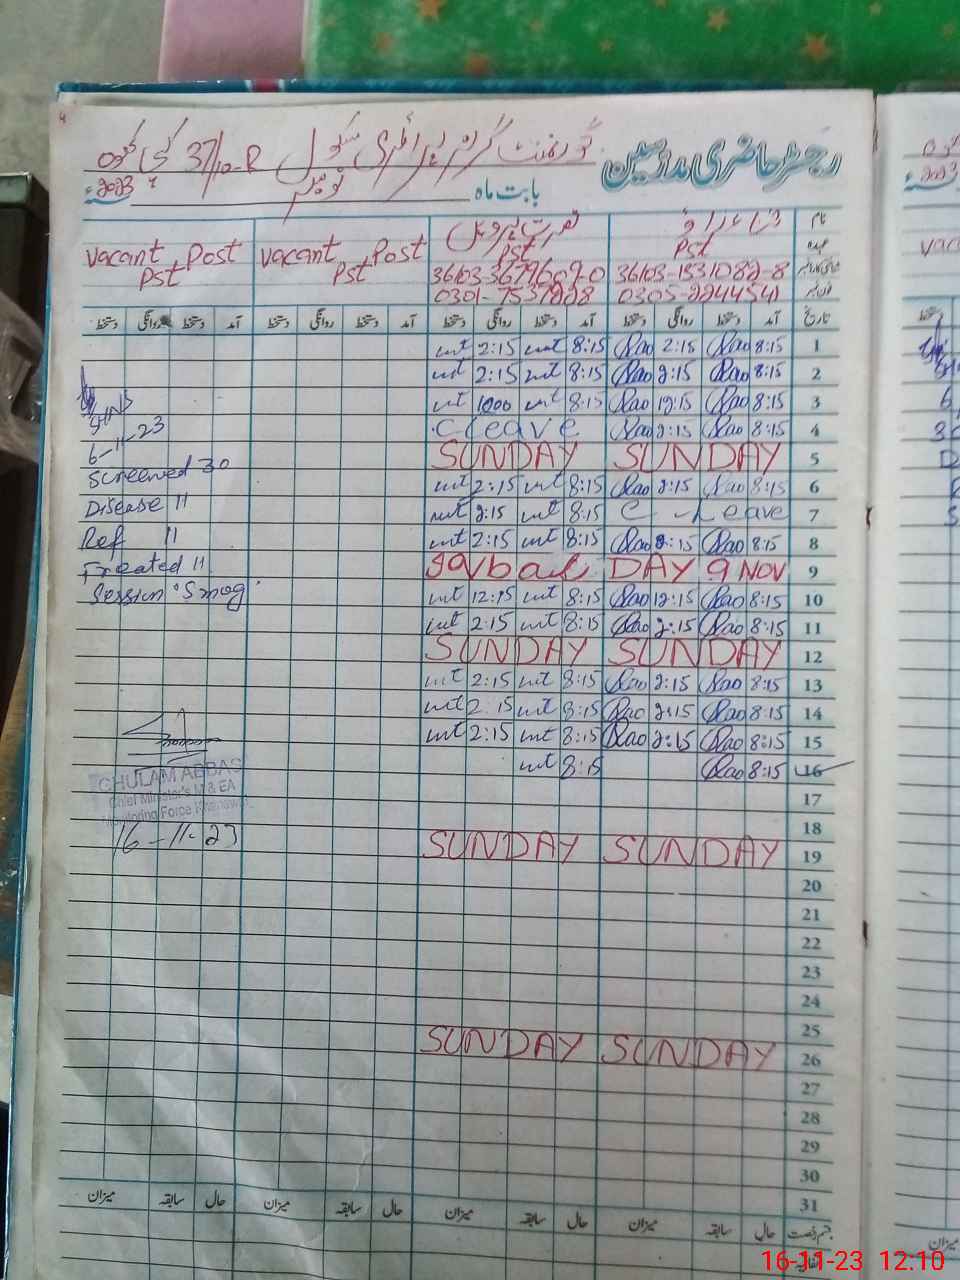 رجسٹر حاضری مدرسین گورنمنٹ گرلز پرائمری سکول 37/10-R کچی کھوہ
بابت ماہ نومبر 2023ء
نام
عہدہ Pst Pst vacant Post Pst vacant Post Pst
36103-1531082-8 36103-3679609-0
0305-2244541 0301-7537228
تاریخ آمد دستخط روانگی دستخط آمد دستخط روانگی دستخط آمد دستخط روانگی دستخط آمد دستخط روانگی دستخط
1 8:15 Rao 2:15 Rao 8:15 2:15
2 8:15 Rao 2:15 Rao 8:15 2:15
3 8:15 Rao 12:15 Rao 8:15
4 8:15 Rao 2:15 Rao C leave
5 SUNDAY SUNDAY
6 8:15 Rao 2:15 Rao 8:15 2:15
7 C - Leave 8:15 2:15
8 8:15 Rao 2:15 Rao 8:15 2:15
9 Iqbal DAY 9 NOV
10 8:15 Rao 12:15 Rao 8:15 12:15
11 8:15 Rao 2:15 Rao 8:15 2:15
12 SUNDAY SUNDAY
13 8:15 Rao 2:15 Rao 8:15 2:15
14 8:15 Rao 2:15 Rao 8:15 2:15
15 8:15 Rao 2:15 Rao 8:15 2:15
16 8:15 Rao 8:15
17
18
19 SUNDAY SUNDAY
20
21
22
23
24
25
26 SUNDAY SUNDAY
27
28
29
30
31
SHNS
6-11-23
Screened 30
Disease 11
Ref 11
Treated 11
Session "Smog"
GHULAM ABBAS
Chief Minister's M & EA
Monitoring Force Khanewal
16-11-23
حال سابقہ میزان حال سابقہ میزان حال سابقہ میزان حال سابقہ میزان
16-11-23 12:10